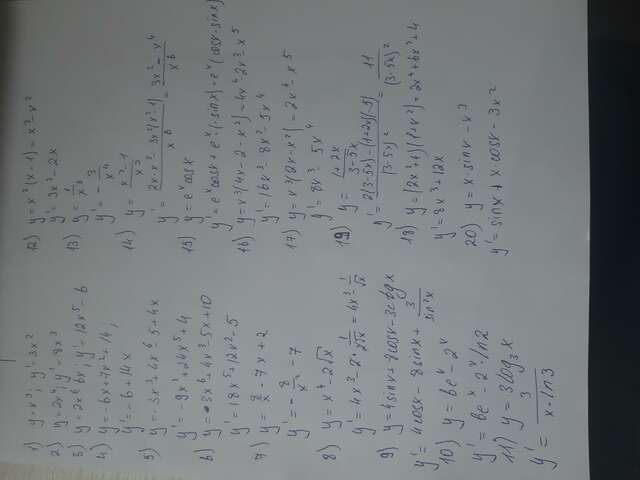 1) y = x³; y' = 3x²
2) y = 2x⁴; y' = 8x³
3) y = 2x⁶ - 6x; y' = 12x⁵ - 6
4) y = -6x + 7x² + 14;
y' = -6 + 14x
5) y = -3x³ + 4x⁶ - 5 + 4x
y' = -9x² + 24x⁵ + 4
6) y = 3x⁶ + 4x³ - 5x + 10
y' = 18x⁵ + 12x² - 5
7) y = 8/x - 7x + 2
y' = -8/x² - 7
8) y = x⁴ - 2√x
y' = 4x³ - 2 · 1/2√x = 4x³ - 1/√x
9) y = 4sinx + 8cosx - 3ctgx
y' = 4cosx - 8sinx + 3/sin²x
10) y = 6eˣ - 2ˣ
y' = 6eˣ - 2ˣln2
11) y = 3log₃x
y' = 3/x·ln3
12) y = x²(x-1) = x³ - x²
y' = 3x² - 2x
13) y = 1/x³
y' = -3/x⁴
14) y = x²-1/x³
y' = 2x·x³ - 3x²(x²-1)/x⁶ = 3x² - x⁴/x⁶
15) y = eˣcosx
y' = eˣcosx + eˣ·(-sinx) = eˣ(cosx - sinx)
16) y = x³(4x - 2 - x²) = 4x⁴ - 2x³ - x⁵
y' = 16x³ - 8x² - 5x⁴
17) y = x³(2x - x²) = 2x⁴ - x⁵
y' = 8x³ - 5x⁴
19) y = 1+2x/3-5x
y' = 2(3-5x) - (1+2x)(-5)/(3-5x)² = 11/(3-5x)²
18) y = (2x²+4)(1+x²) = 2x⁴ + 6x² + 4
y' = 8x³ + 12x
20) y = x·sinx - x³
y' = sinx + x cosx - 3x²